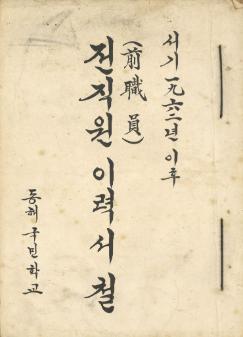 서기 一九六二年 이후
(前職員)
전직원 이력서 철
동혀국민학교